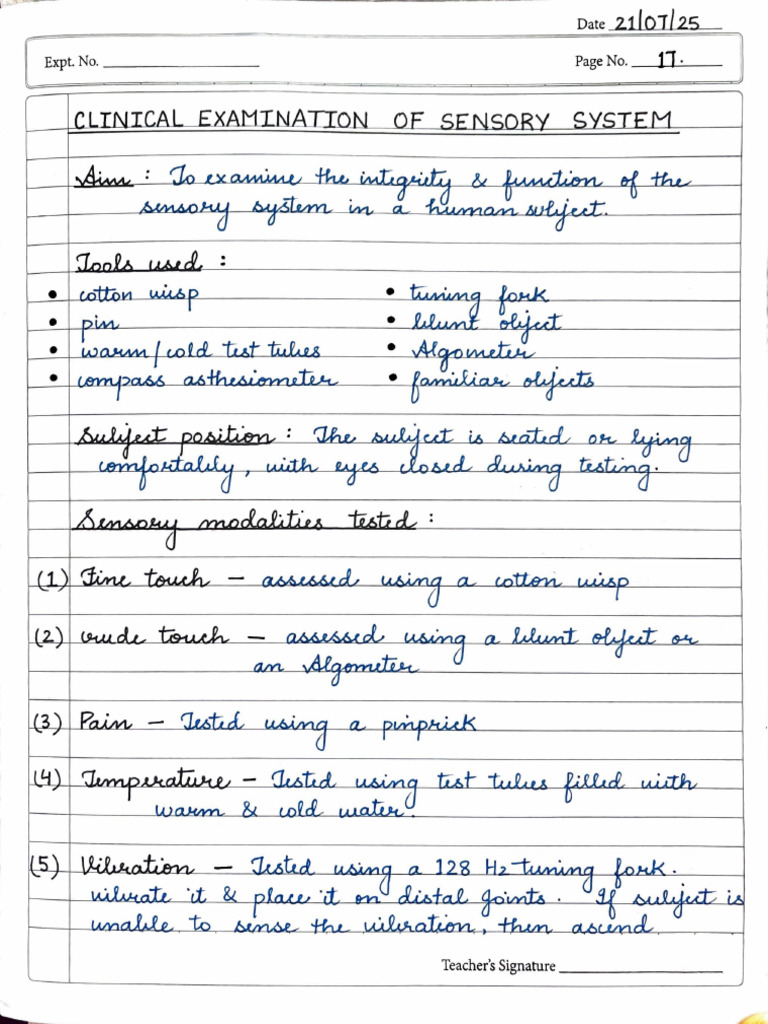 Date 21/07/25
Expt. No. Page No. 17.
CLINICAL EXAMINATION OF SENSORY SYSTEM
Aim : To examine the integrity & function of the
sensory system in a human subject.
Tools used :
• cotton wisp • tuning fork
• pin • blunt object
• warm/cold test tubes • Algometer
• compass asthesiometer • familiar objects
Subject position : The subject is seated or lying
comfortably, with eyes closed during testing.
Sensory modalities tested :
(1) Fine touch – assessed using a cotton wisp
(2) crude touch – assessed using a blunt object or
an Algometer
(3) Pain – Tested using a pinprick
(4) Temperature – Tested using test tubes filled with
warm & cold water.
(5) Vibration – Tested using a 128 Hz tuning fork.
vibrate it & place it on distal joints. If subject is
unable to sense the vibration, then ascend
Teacher's Signature